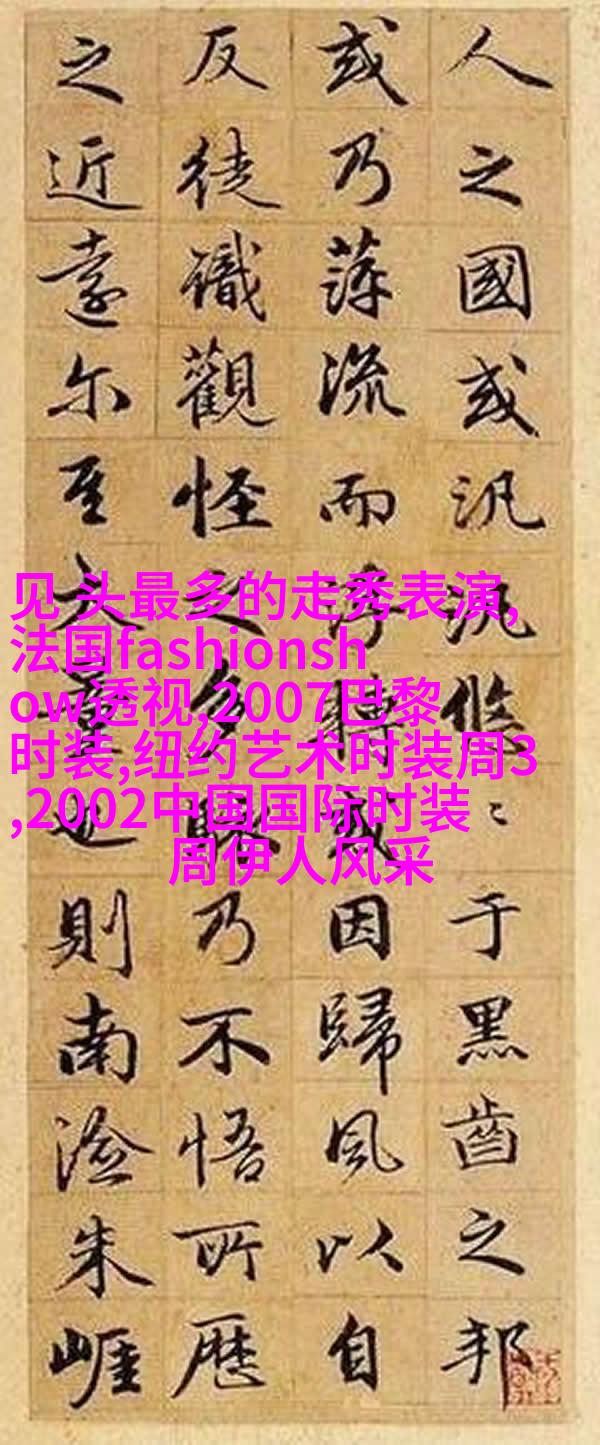 人之國或汎汎悠〻于黑齒之邦
或乃萍流而浮轉或因歸風以自
反徒識觀怪之多駭乃不悟所歷
之近遠尔至大量也則南澰朱崕
见 头最多的走秀表演,
法国fashionsh
ow透视,2007巴黎
时装,纽约艺术时装周3
,2002中国国际时装
周伊人风采